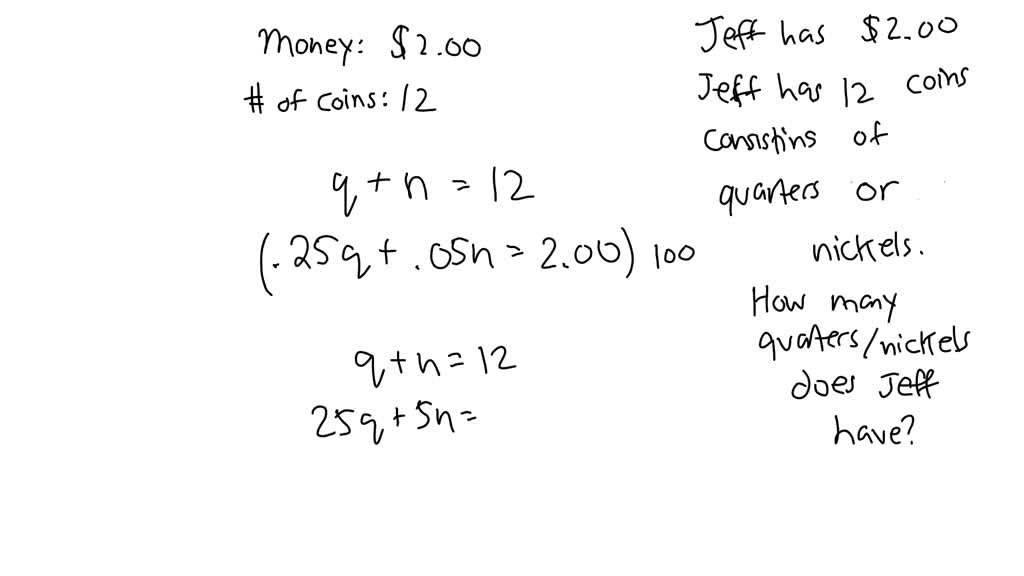 Money: $2.00
# of coins: 12
q + n = 12
(.25q + .05n = 2.00) 100
q + n = 12
25q + 5n =
Jeff has $2.00
Jeff has 12 coins
consistins of
quarters or
nickels.
How many
quaters/nickels
does Jeff
have?